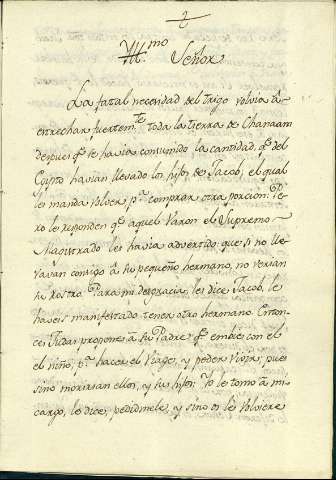 2
Yll.mo Señor
La fatal necesidad del trigo volvia à
estrechar fuertem.te toda la tierra de Chanaam
despues q.e se havia consumido la cantidad, q.e del
Egipto havian llevado los hijos de Jacob, el qual
les manda volver, p.a comprar otra porcion. Pe-
ro le responden q.e aquel Varon el Supremo
Magistrado les havia advertido que si no lle-
vavan consigo à su pequeño hermano, no verian
su rostro. Para mi desgracia, les dice Jacob, le
haveis manifestado tener otro hermano. Enton-
ces Judas propone à su Padre q.e embie con el
el niño, p.a hacer el Viage, y poder vivir, pues
sino moririan ellos, y sus hijos: Yo le tomo à mi
cargo, le dice, pedidmele, y sino os le volviere